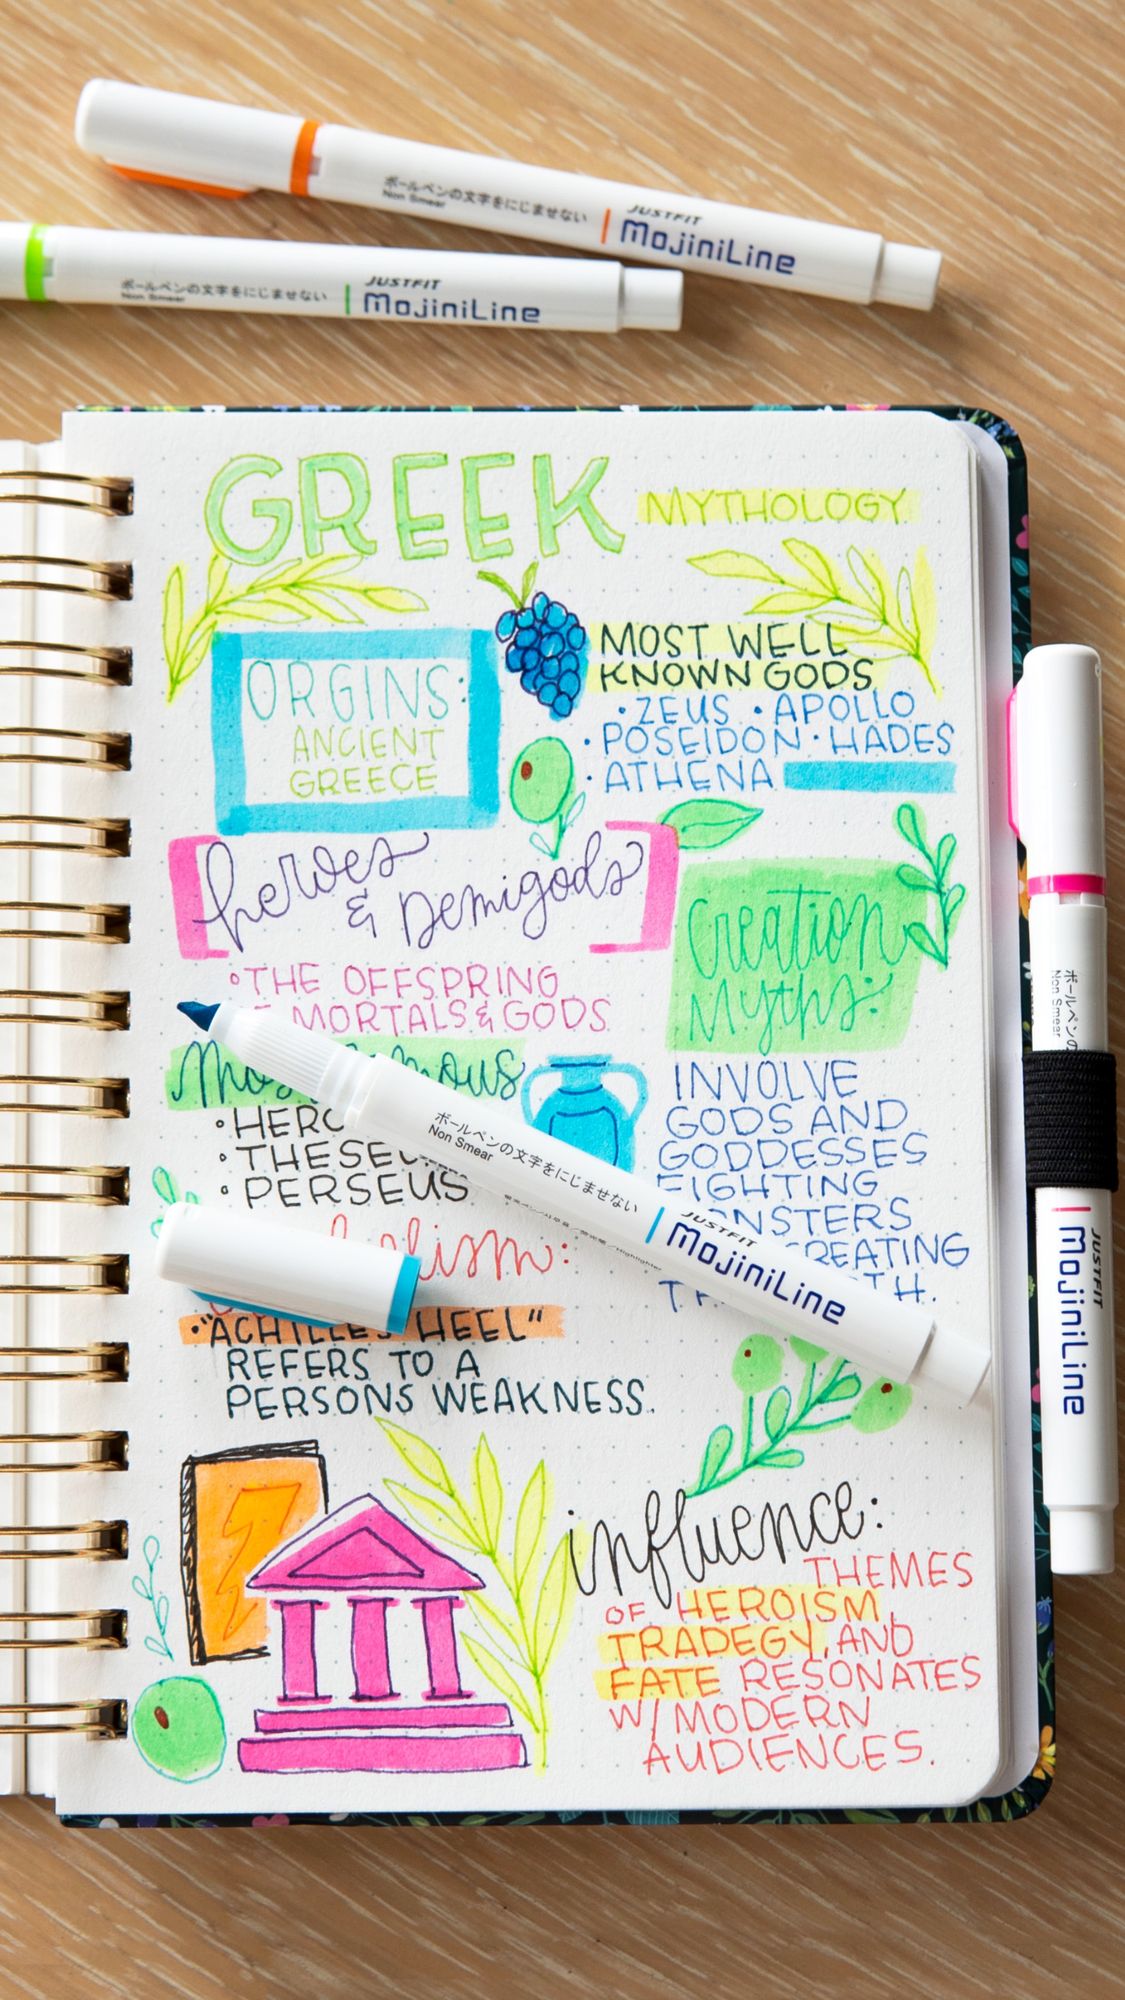 ボールペンの文字をにじませない
Non Smear
JUSTFIT
MojiniLine
ボールペンの文字をにじませない
Non Smear
JUSTFIT
MojiniLine
GREEK MYTHOLOGY
ORGINS:
ANCIENT
GREECE
MOST WELL
KNOWN GODS
• ZEUS • APOLLO
• POSEIDON • HADES
• ATHENA
heroes
& Demigods
• THE OFFSPRING
MORTALS & GODS
Creation
Myths:
• PERSEUS
INVOLVE
GODS AND
GODDESSES
FIGHTING
"ACHILLES HEEL"
REFERS TO A
PERSONS WEAKNESS.
influence:
THEMES
OF HEROISM,
TRADEGY, AND
FATE RESONATES
W/ MODERN
AUDIENCES.
ボールペンの文字をにじませない
Non Smear
JUSTFIT
MojiniLine
Non Smear
JUSTFIT
MojiniLine